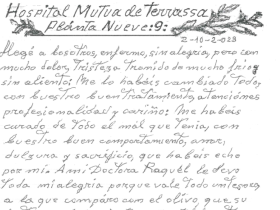 Hospital Mutua de Terrassa
Planta Nueve:9:
2-10-2.028
llegé a bosotros, enfermo, sin alegria, pero con
mucho dolor, Tristeza Tranido de mucho frio
sin aliento Me lo habéis cambiado Todo,
con buestro buen Tratamiento, atenciónes
profesionalidad y cariño: Me habéis
curado de Todo el mál que Tenia, con
buestro buen comportamiento, amor,
dulzura y sacrificio, que habéis echo
por mi. Ami Doctora Raquel le devo
Toda mi alegria porque vale Todo un Tesoro
a la que comparo con el olivo, que su